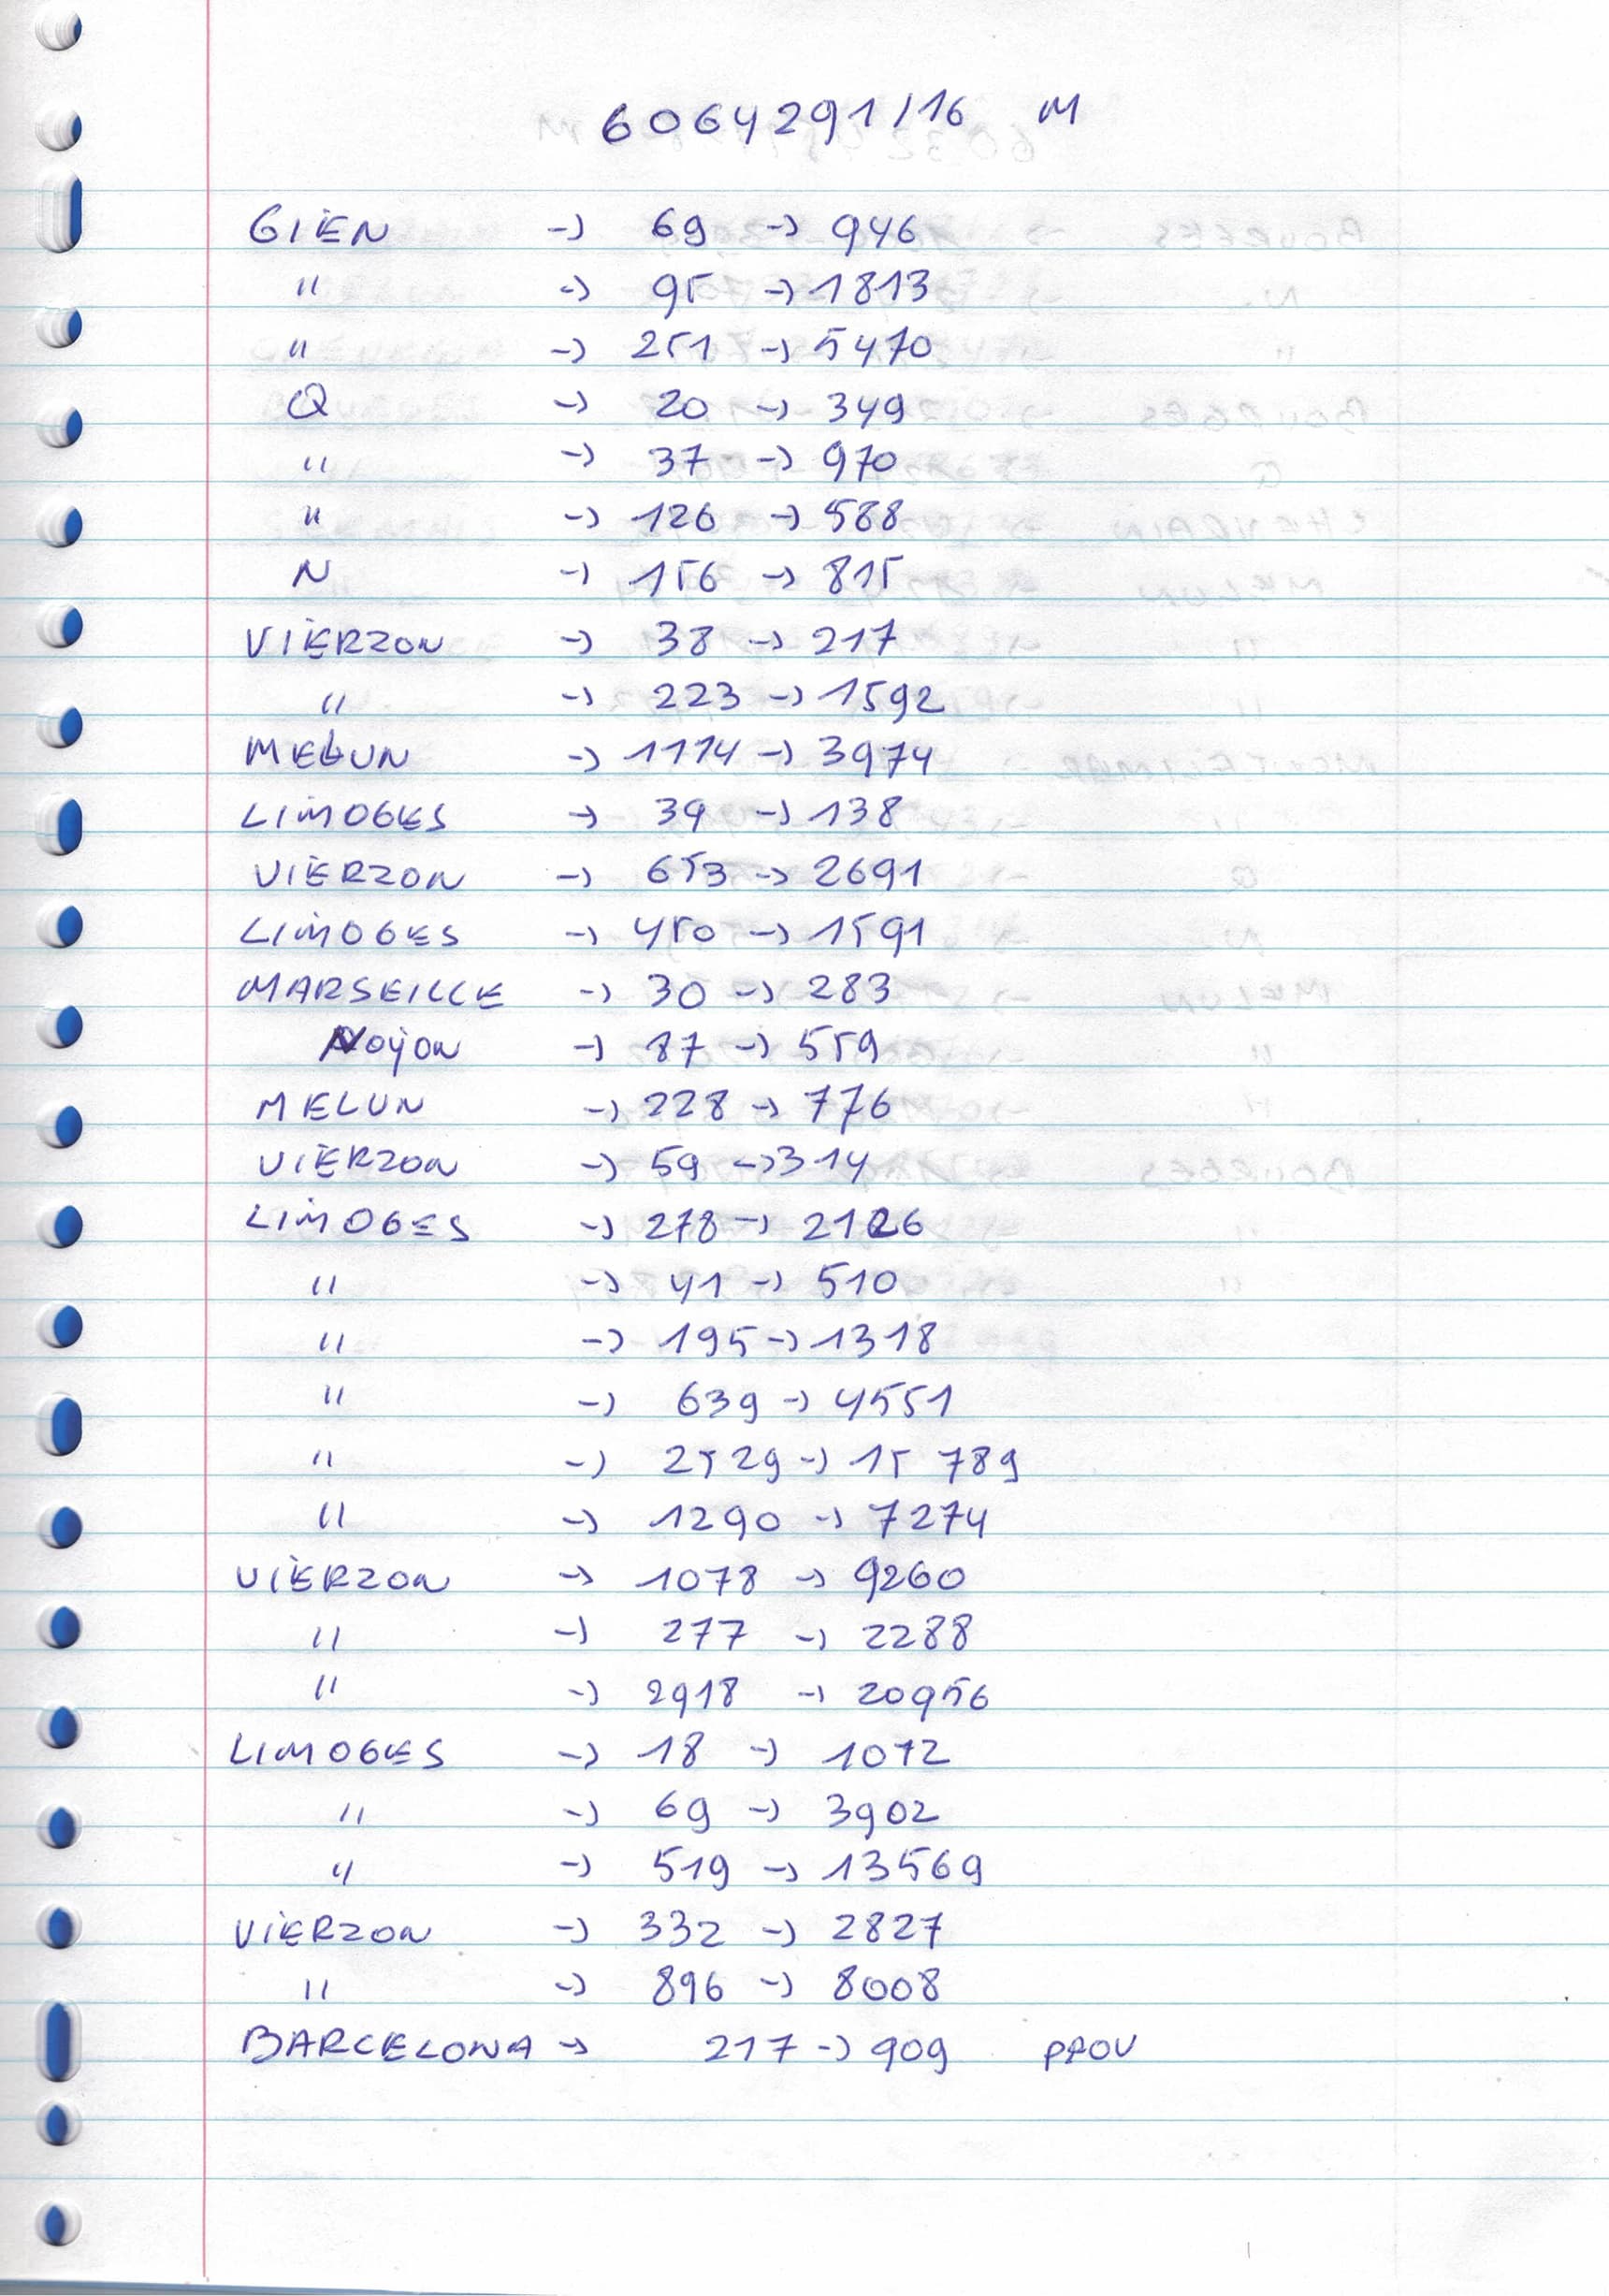 6064291/16 M
GIEN -> 69 -> 946
" -> 95 -> 1813
" -> 251 -> 5470
Q -> 20 -> 349
" -> 37 -> 970
" -> 126 -> 588
N -> 156 -> 815
VIERZON -> 38 -> 217
" -> 223 -> 1592
MELUN -> 1114 -> 3974
LIMOGES -> 39 -> 138
VIERZON -> 653 -> 2691
LIMOGES -> 450 -> 1591
MARSEILLE -> 30 -> 283
NOYON -> 87 -> 559
MELUN -> 228 -> 776
VIERZON -> 59 -> 314
LIMOGES -> 278 -> 2126
" -> 41 -> 510
" -> 195 -> 1318
" -> 639 -> 4551
" -> 2529 -> 15 789
" -> 1290 -> 7274
VIERZON -> 1078 -> 9260
" -> 277 -> 2288
" -> 2918 -> 20956
LIMOGES -> 18 -> 1072
" -> 69 -> 3902
" -> 519 -> 13569
VIERZON -> 332 -> 2827
" -> 896 -> 8008
BARCELONA -> 217 -> 909 PROV